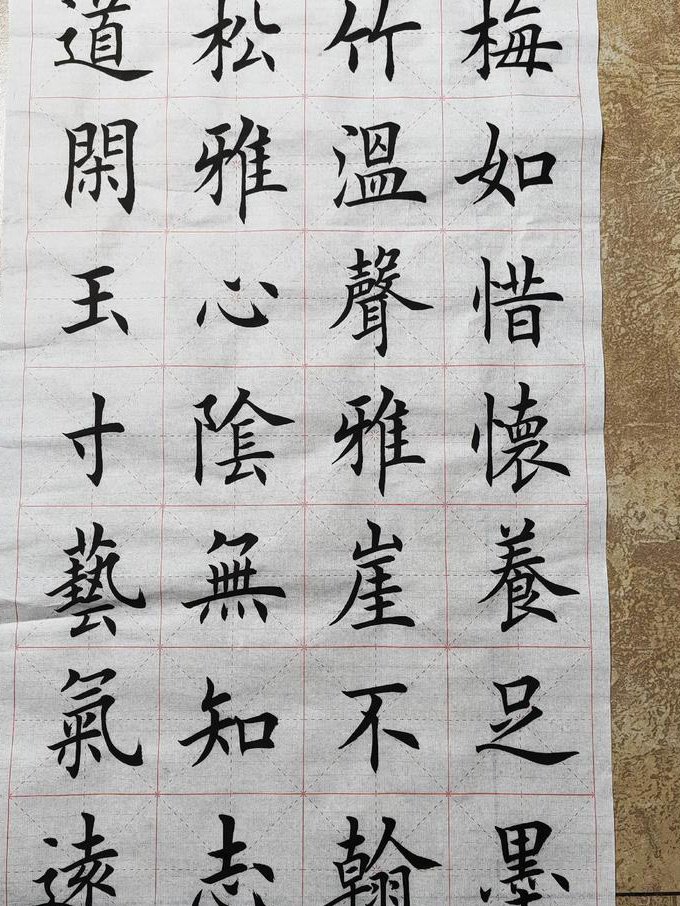 梅如惜懷養足墨
竹溫聲雅崖不翰
松雅心陰無知志
道閑玉寸藝氣遠